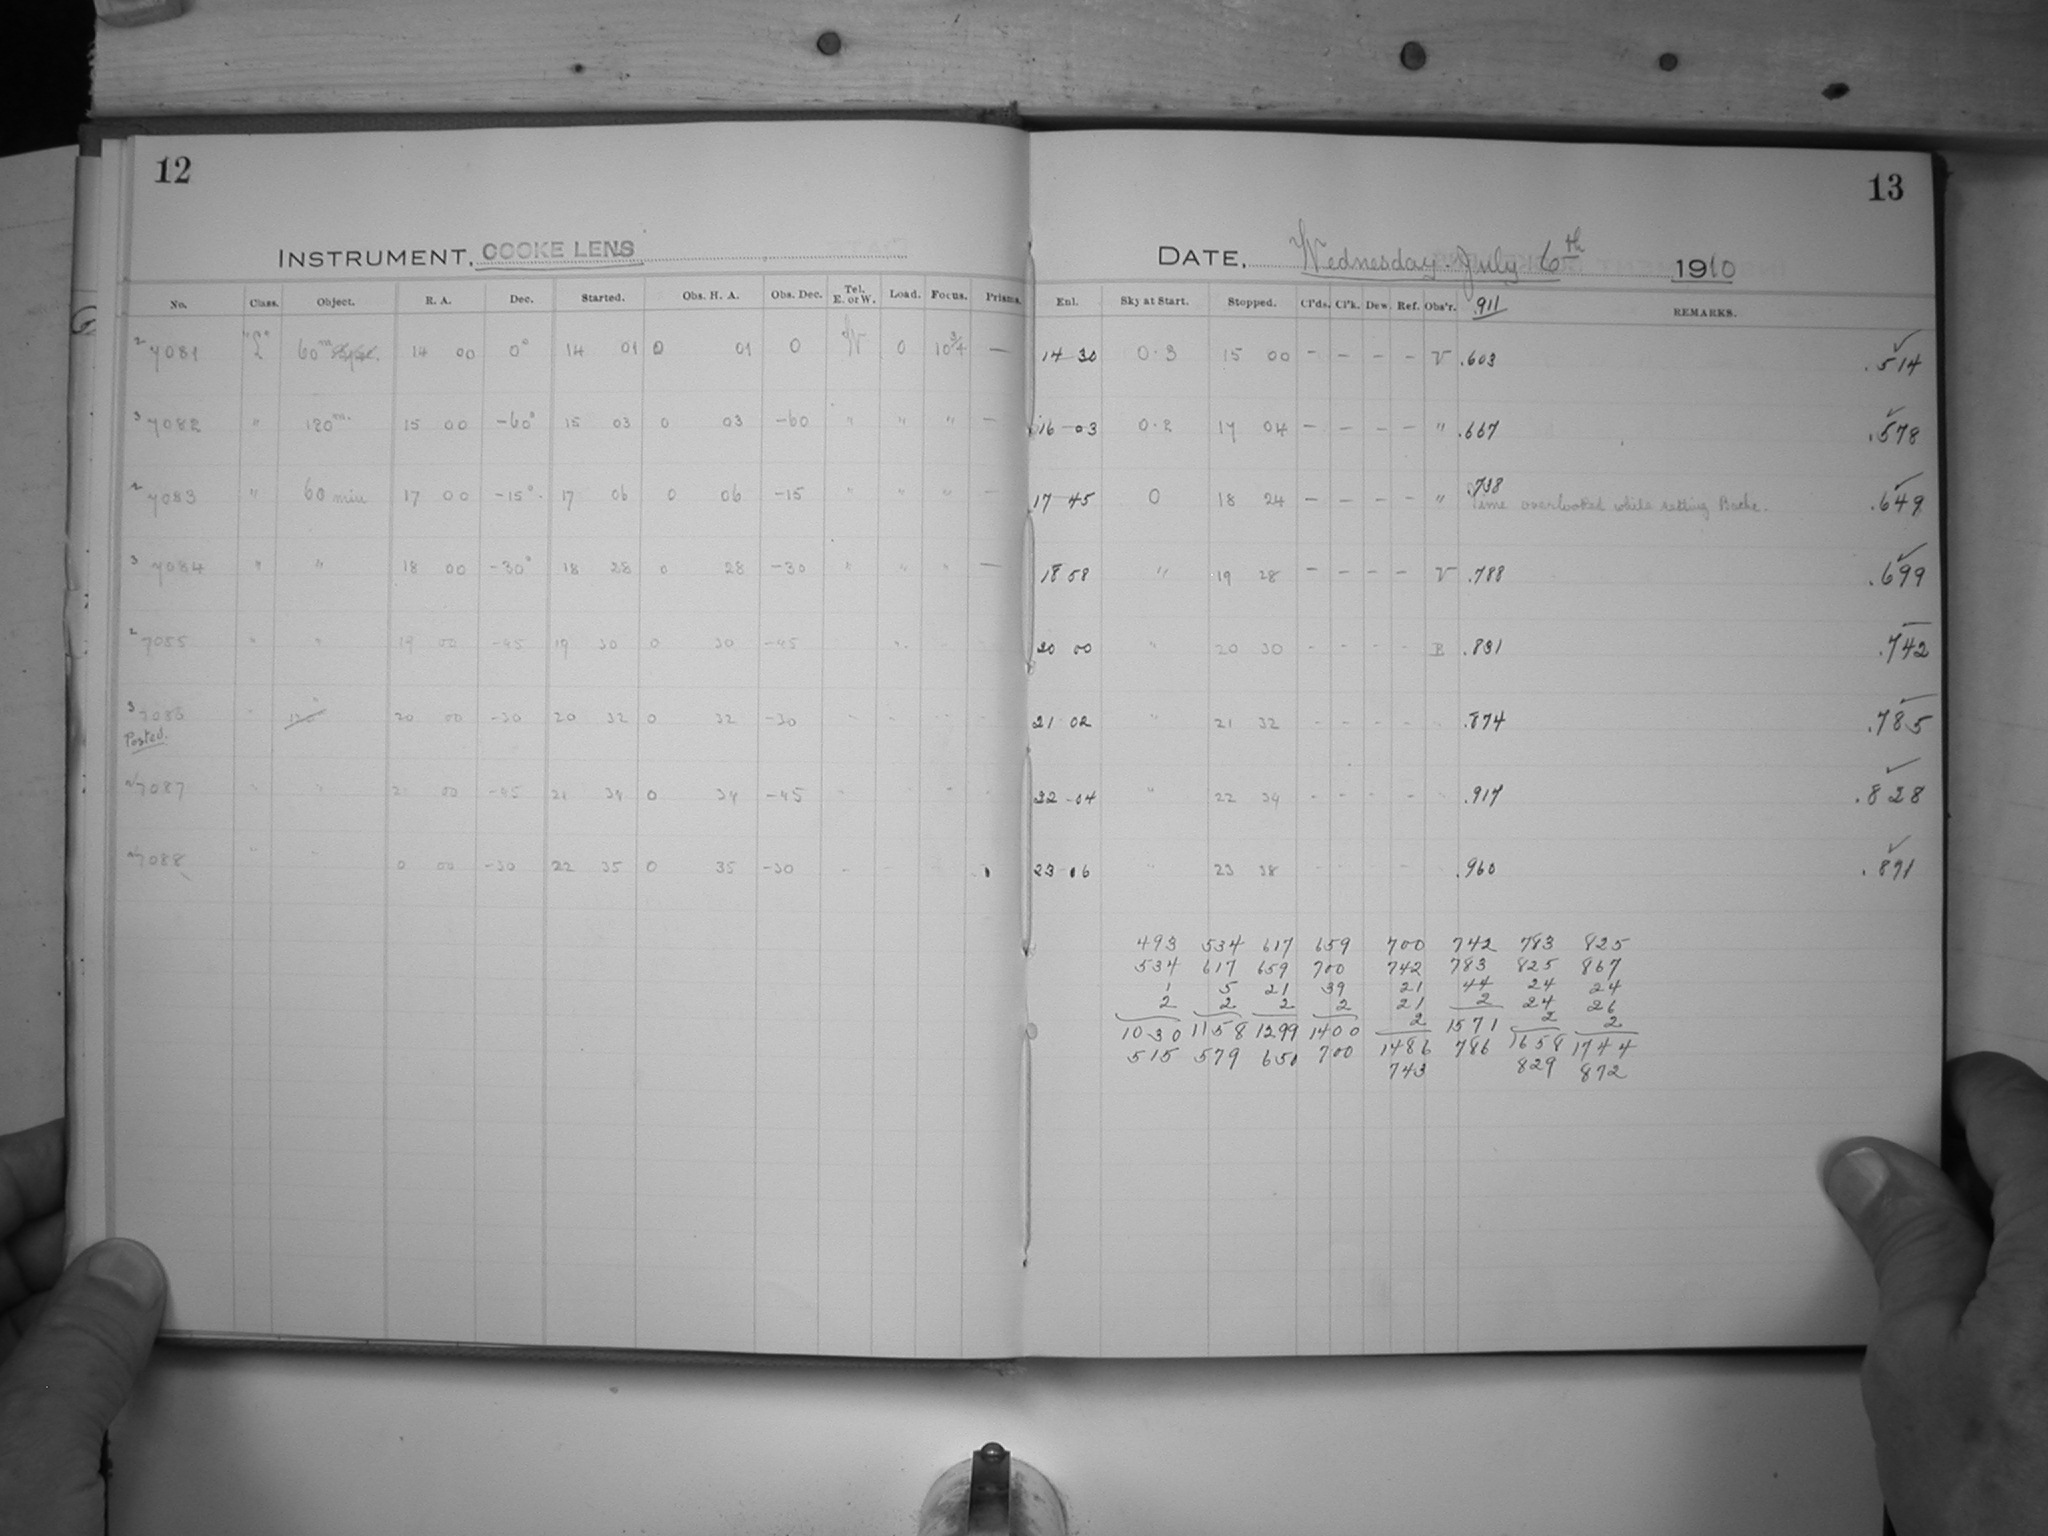 12
13
INSTRUMENT, COOKE LENS
DATE, Wednesday. July 6th 1910
No. Class. Object. R. A. Dec. Started. Obs. H. A. Obs. Dec. Tel. E. or W. Load. Focus. Prisms.
Enl. Sky at Start. Stopped. Cl'ds. Cl'k. Dew. Ref. Obs'r. .911 REMARKS.
2 7081 "L" 60m 14 00 0° 14 01 0 01 0 W 0 10 3/4 — 14 30 0.3 15 00 - - - - V .603 .514
3 7082 " 120m. 15 00 -60° 15 03 0 03 -60 " " " — 16-03 0.2 17 04 - - - - " .667 .578
2 7083 " 60 min 17 00 -15°. 17 06 0 06 -15 " " " — 17 45 0 18 24 - - - - " .738 .649
Time overlooked while setting Bache.
3 7084 " " 18 00 -30° 18 28 0 28 -30 " " " — 18 58 " 19 28 - - - - V .788 .699
2 7055 " " 19 00 -45 19 30 0 30 -45 20 00 " 20 30 - - - - B .831 .742
3 7086 " 20 00 -30 20 32 0 32 -30 21 02 " 21 32 - - - .874 .785
Posted.
2 7087 " " 21 00 -45 21 34 0 34 -45 22-04 " 22 34 - - - - .917 .828
2 7088 " 0 00 -30 22 35 0 35 -30 23 06 " 23 38 - - - - .960 .871
493 534 617 659 700 742 783 825
534 617 659 700 742 783 825 867
1 5 21 39 21 44 24 24
2 2 2 2 21 2 24 26
1030 1158 1299 1400 2 1571 2 2
515 579 650 700 1486 786 1658 1744
743 829 872